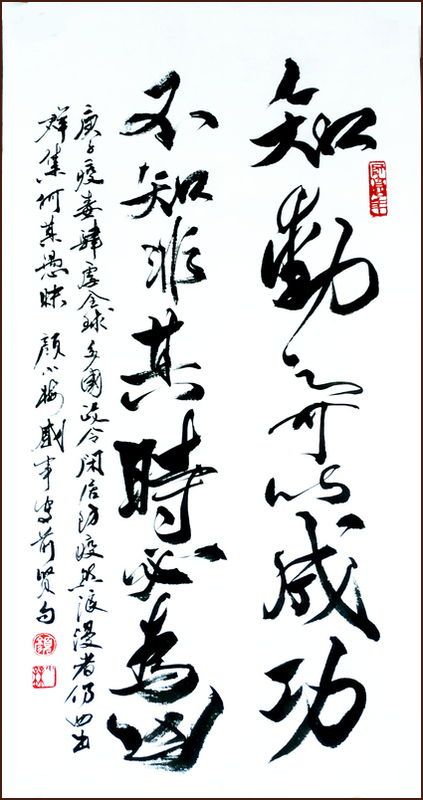 知動之可以成功
不知非其時必為凶
庚子疫毒肆虐全球多國政令閉居防疫然浪漫者仍四出
群集何其愚昧 顏小梅感事寫前賢句